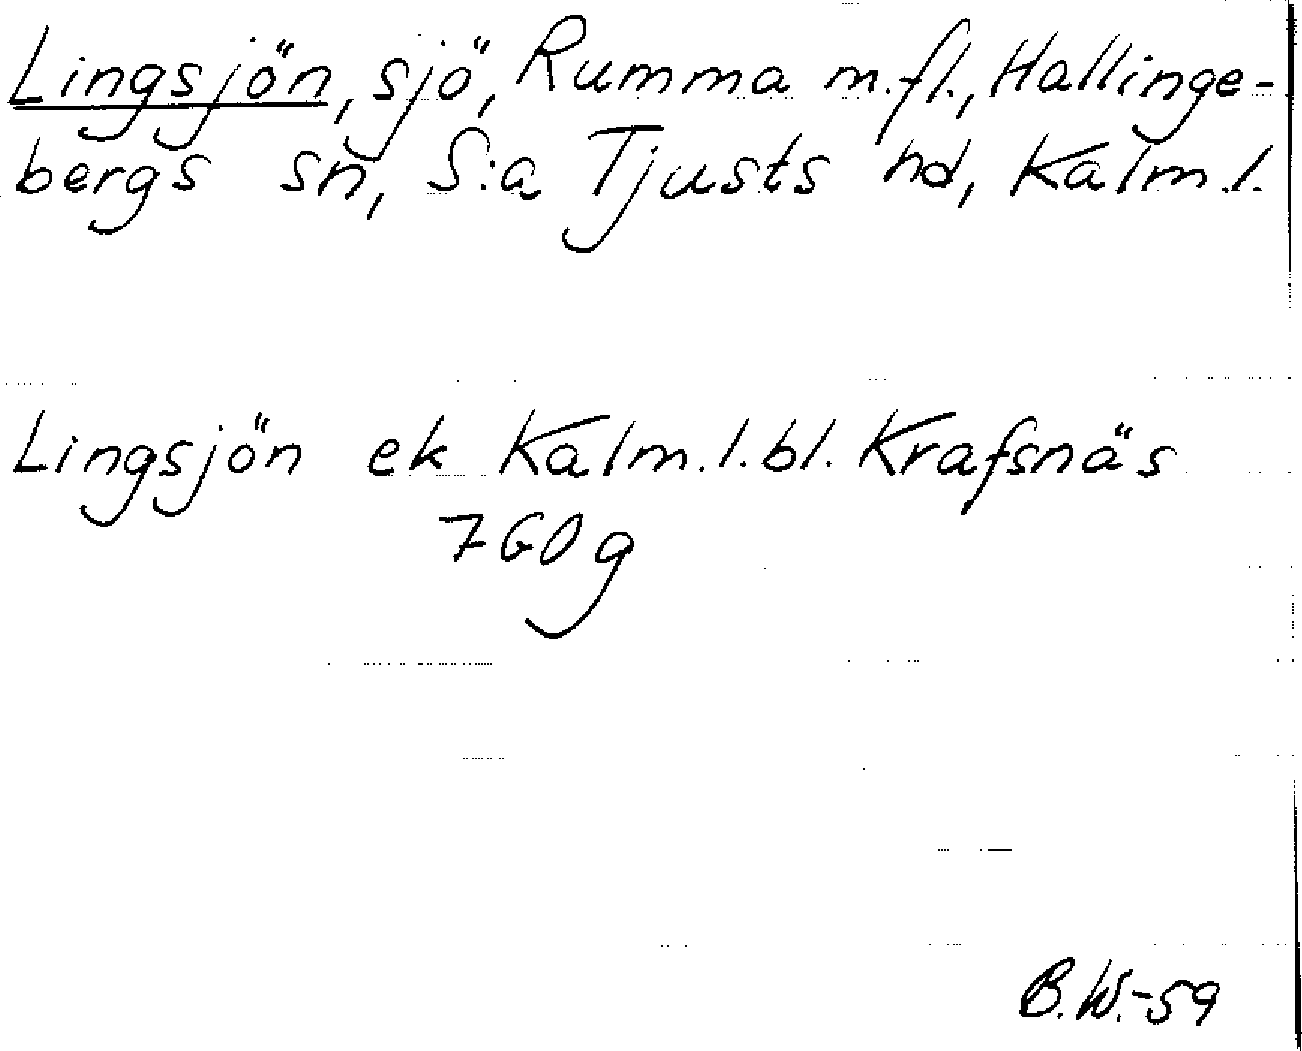 Lingsjön, sjö, Rumma m.fl., Hallinge-
bergs sn, S:a Tjusts hd, Kalm.l.
Lingsjön ek Kalm.l.bl. Krafsnäs
7G0g
B.W.-59